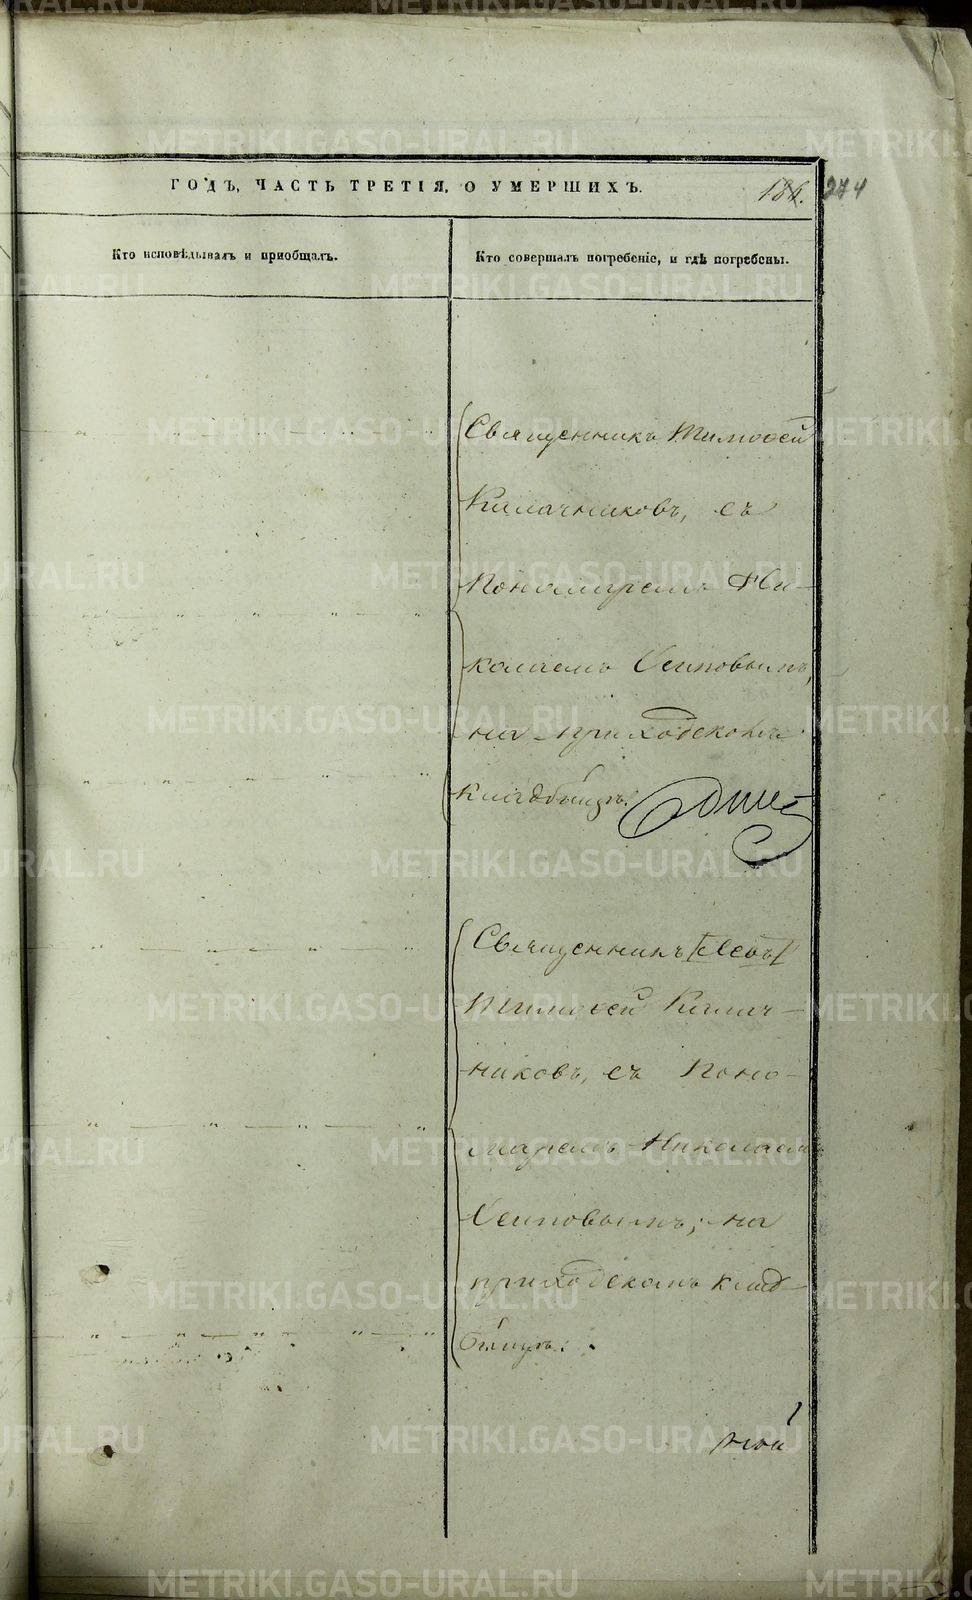 ГОДЪ, ЧАСТЬ ТРЕТІЯ, О УМЕРШИХЪ.
186. 274
Кто исповѣдывалъ и приобщалъ.
Кто совершалъ погребеніе, и гдѣ погребены.
Священникъ Тимоѳей
Калачниковъ, съ
Пономаремъ Ни-
колаемъ Осиповымъ,
на приходскомъ
кладбищѣ.
Священникъ
Тимоѳей Калач-
никовъ, съ Поно-
маремъ Николаемъ
Осиповымъ; на
приходскомъ клад-
бищѣ.
METRIKI.GASO-URAL.RU